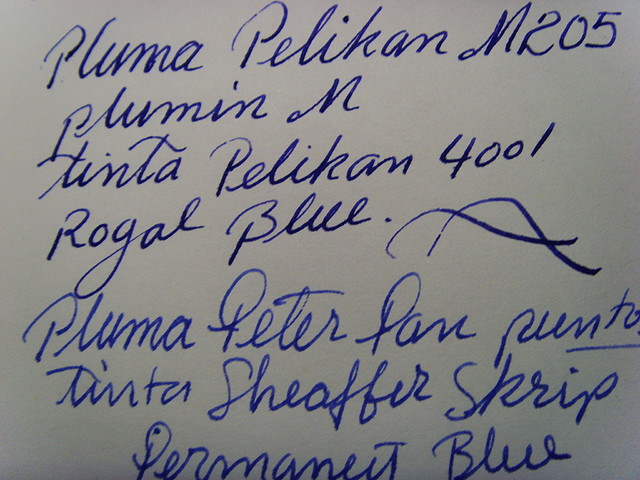 Pluma Pelikan M205
plumin M
tinta Pelikan 4001
Rogal Blue.
Pluma Peter Pan punto
tinta Sheaffer Skrip
Permanent Blue